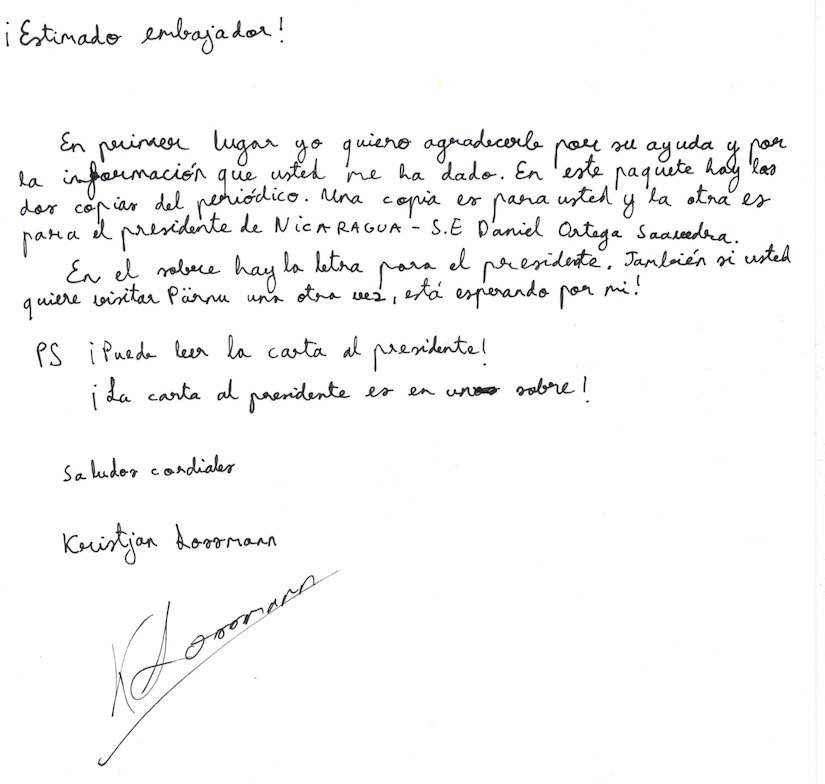 ¡Estimado embajador!
En primer lugar yo quiero agradecerle por su ayuda y por
la información que usted me ha dado. En este paquete hay los
dos copias del periódico. Una copia es para usted y la otra es
para el presidente de NiCARAGUA - S.E Daniel Ortega Saavedra.
En el sobece hay la letra para el presidente. También si usted
quiere visitar Pärnu una otra vez, está esperando por mi!
PS ¡Puede leer la carta al presidente!
¡La carta al presidente es en un sobre!
Saludos cordiales
Kristjan Lossmann
K Lossmann